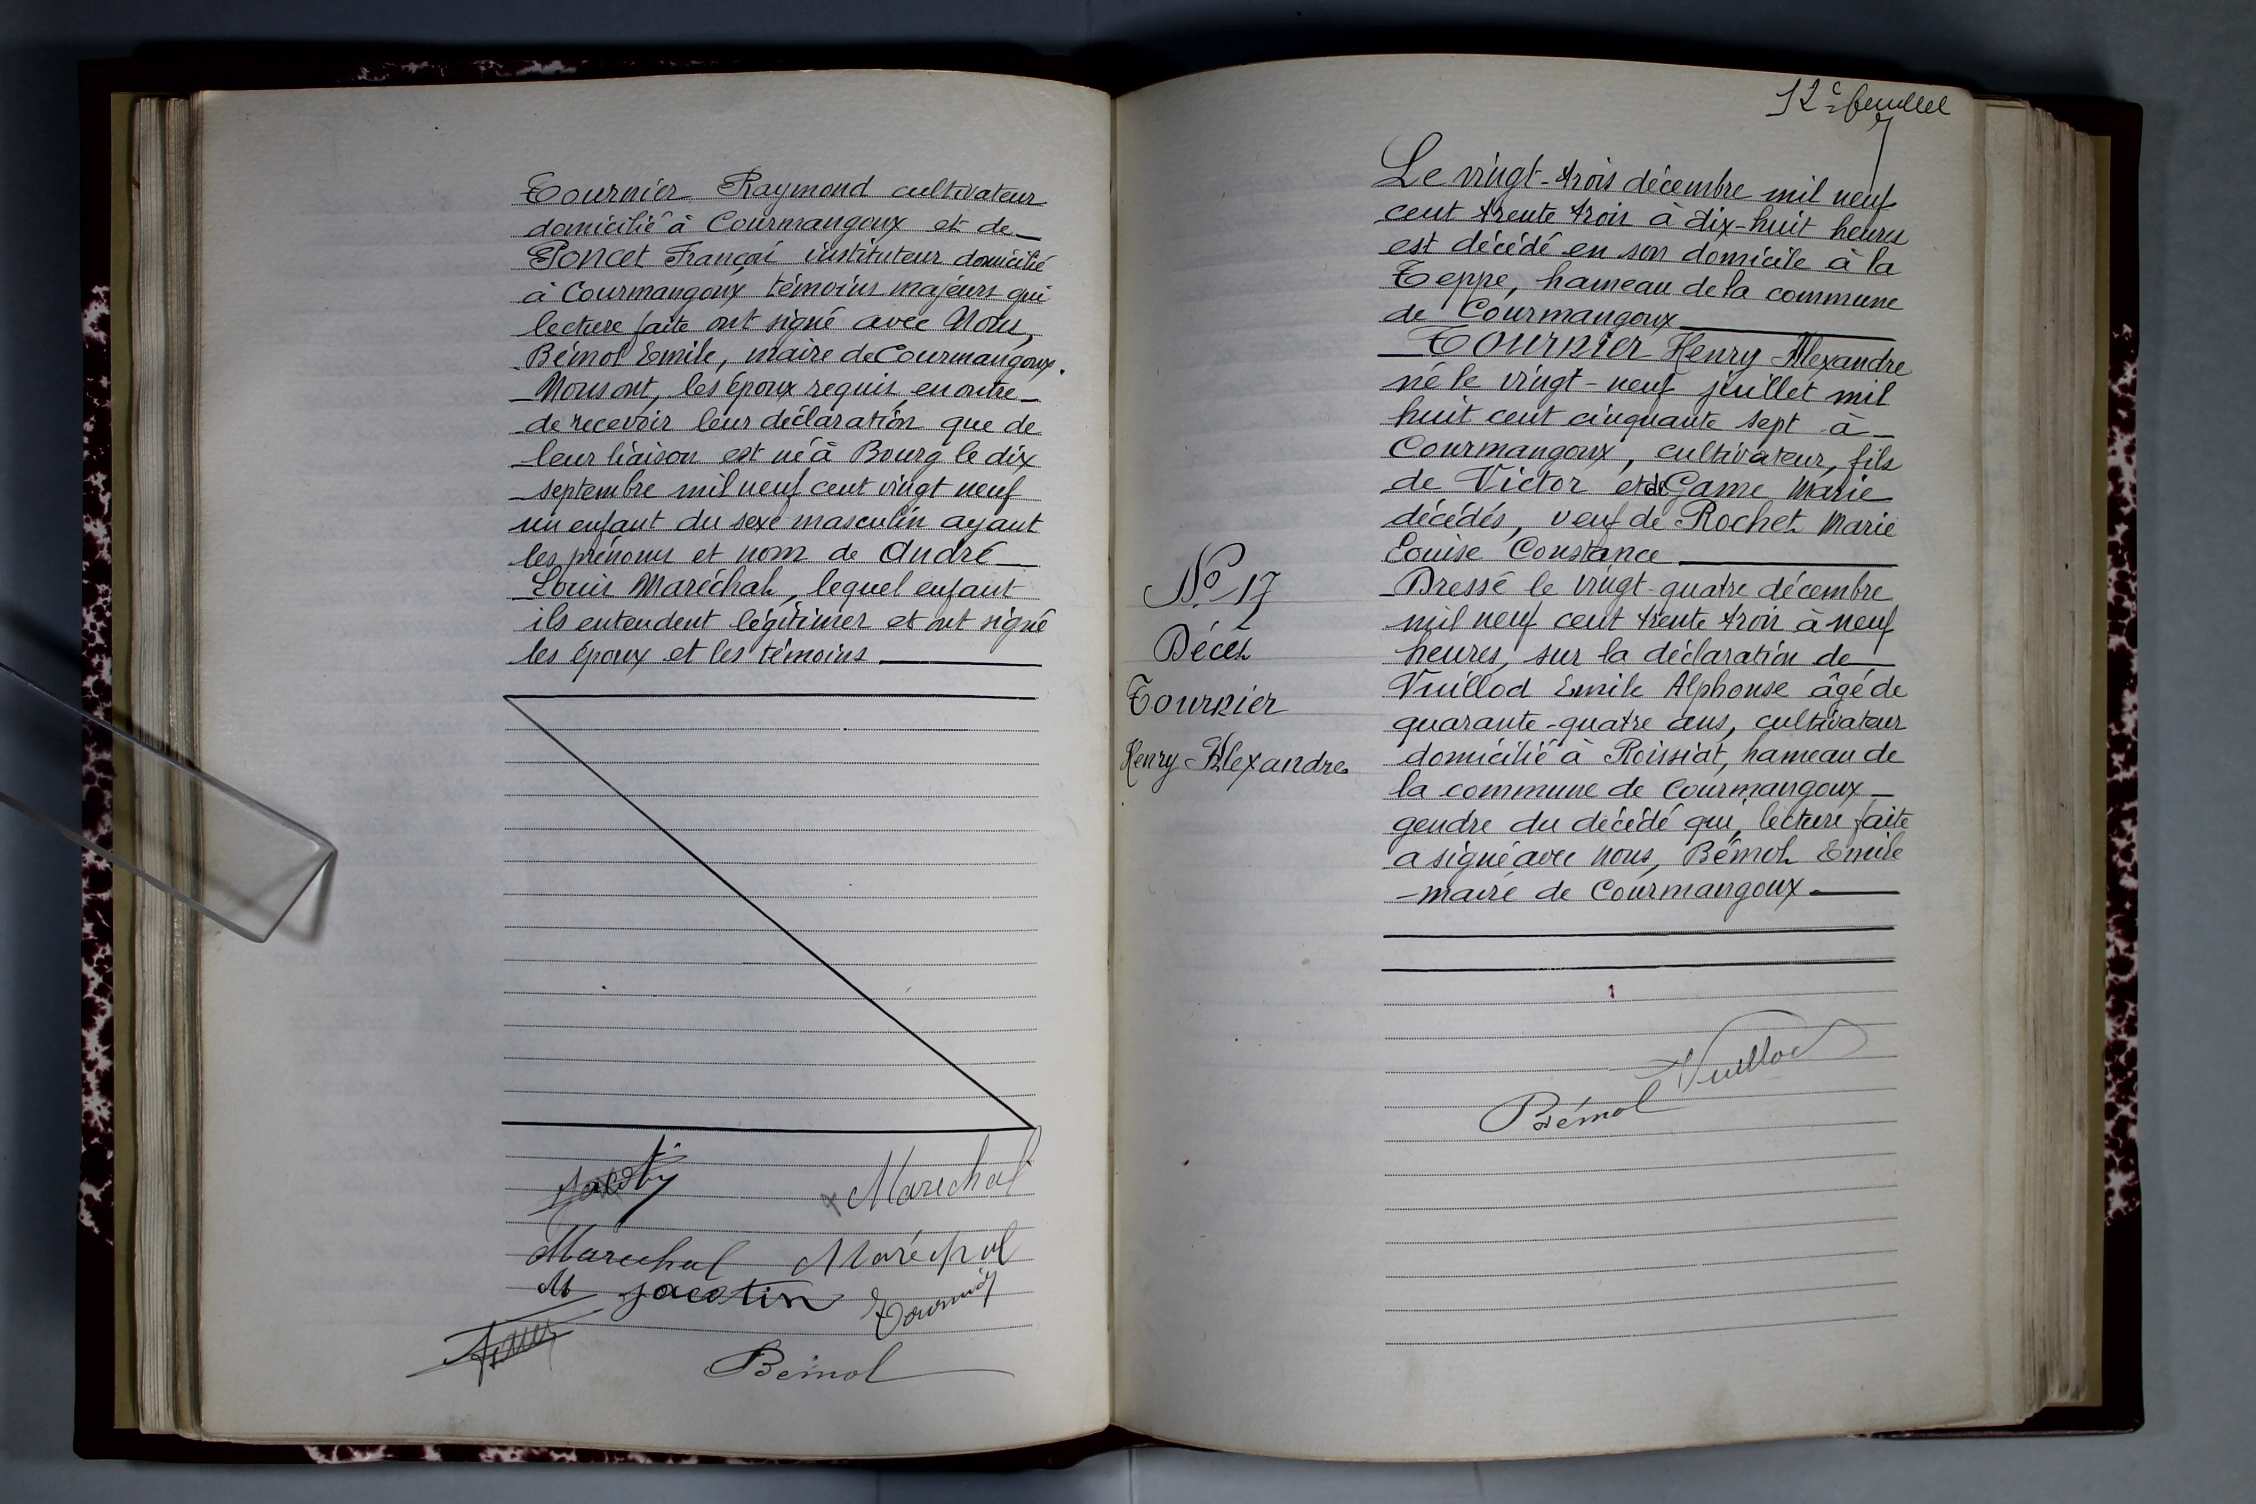 Tournier Raymond cultivateur
domicilié à Courmangoux et de
Poncet Françoi instituteur domicilié
à Courmangoux témoins majeurs qui
lecture faite ont signé avec Nous,
Bémol Emile, maire de Courmangoux.
Nous ont, les époux requis, en outre
de recevoir leur déclaration que de
leur liaison est né à Bourg le dix
septembre mil neuf cent vingt neuf
un enfant du sexe masculin ayant
les prénoms et nom de André
Louis Maréchal, lequel enfant
ils entendent légitimer et ont signé
les époux et les témoins
Marechal
Marechal Maréchal
M Jacotin Tournier
Bémol
12e feuillet
Le vingt-trois décembre mil neuf
cent trente trois à dix-huit heures
est décédé en son domicile à la
Teppe, hameau de la commune
de Courmangoux
Tournier Henry Alexandre
né le vingt-neuf juillet mil
huit cent cinquante sept à
Courmangoux, cultivateur, fils
de Victor et de Game Marie
décédés, veuf de Rochet Marie
Louise Constance
N° 17
Décès
Tournier
Henry Alexandre
Dressé le vingt-quatre décembre
mil neuf cent trente trois à neuf
heures, sur la déclaration de
Vuillod Emile Alphonse âgé de
quarante-quatre ans, cultivateur
domicilié à Roissiat, hameau de
la commune de Courmangoux
gendre du décédé qui, lecture faite
a signé avec nous, Bémol Emile
maire de Courmangoux
Vuillod
Bémol